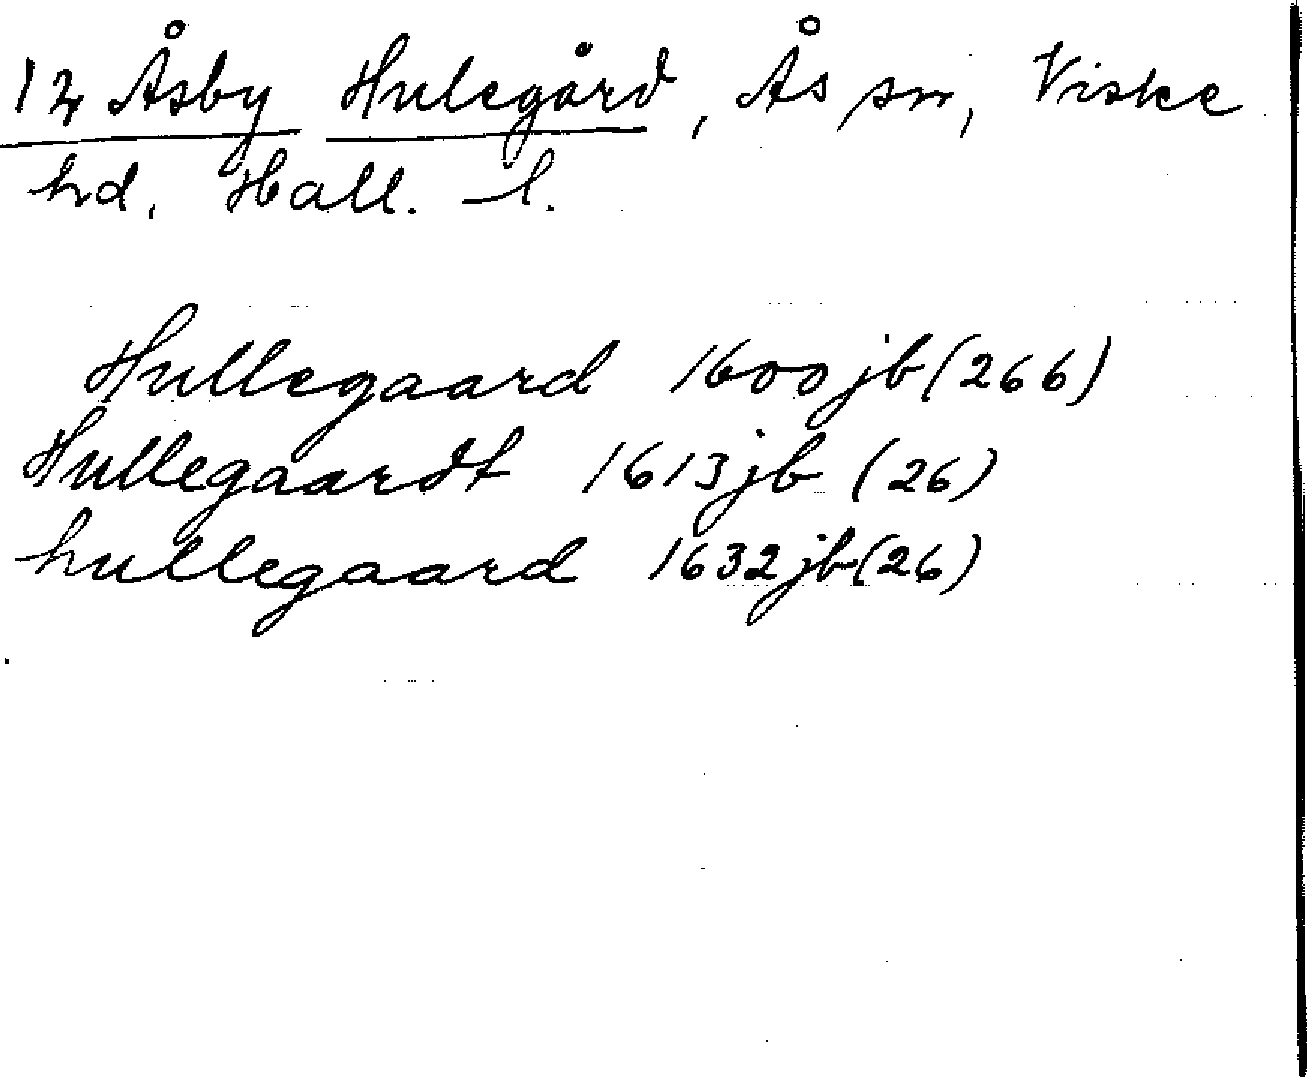 12 Åsby Hulegård, Ås sn, Viske
hd, Hall. l.
Hullegaard 1600 jb (266)
Hullegaardt 1613 jb (26)
hullegaard 1632 jb (26)